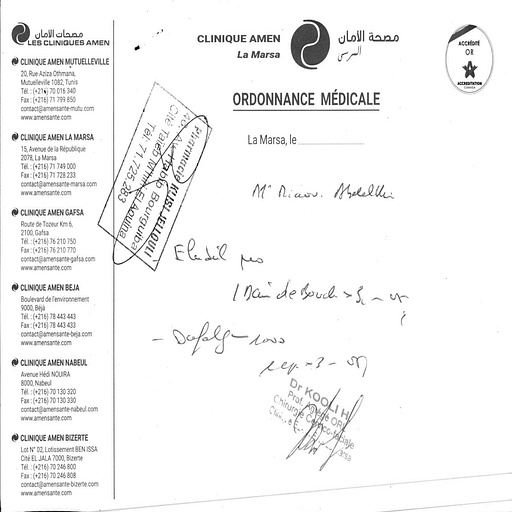 مصحات الأمان
LES CLINIQUES AMEN
CLINIQUE AMEN MUTUELLEVILLE
20, Rue Aziza Othmana,
Mutuelleville 1082, Tunis
Tél. : (+216) 70 016 340
Fax : (+216) 71 799 850
contact@amensante-mutu.com
www.amensante.com
CLINIQUE AMEN LA MARSA
15, Avenue de la République
2078, La Marsa
Tél. : (+216) 71 749 000
Fax : (+216) 71 728 233
contact@amensante-marsa.com
www.amensante.com
CLINIQUE AMEN GAFSA
Route de Tozeur Km 6,
2100, Gafsa
Tél. : (+216) 76 210 750
Fax : (+216) 76 210 770
contact@amensante-gafsa.com
www.amensante.com
CLINIQUE AMEN BEJA
Boulevard de l'environnement
9000, Béjà
Tél. : (+216) 78 443 443
Fax : (+216) 78 443 433
contact@amensante-beja.com
www.amensante.com
CLINIQUE AMEN NABEUL
Avenue Hédi NOUIRA
8000, Nabeul
Tél. : (+216) 70 130 320
Fax : (+216) 70 130 330
contact@amensante-nabeul.com
www.amensante.com
CLINIQUE AMEN BIZERTE
Lot N° 02, Lotissement BEN ISSA
Cité EL JALA 7000, Bizerte
Tél. : (+216) 70 246 800
Fax : (+216) 70 246 808
contact@amensante-bizerte.com
www.amensante.com
CLINIQUE AMEN
La Marsa
مصحة الأمان
المرسى
ACCRÉDITÉ
OR
ACCREDITATION
ORDONNANCE MÉDICALE
La Marsa, le
Pharmacie
Av. Habib Bourguiba
Cité Taieb Mhiri El Aouina
Tél: 71.725.283
Eludril
1 Bain de Bouche x 3
- Dafalg 1000
x 3
Dr KOOLI H.
Prof. Agrégé ORL